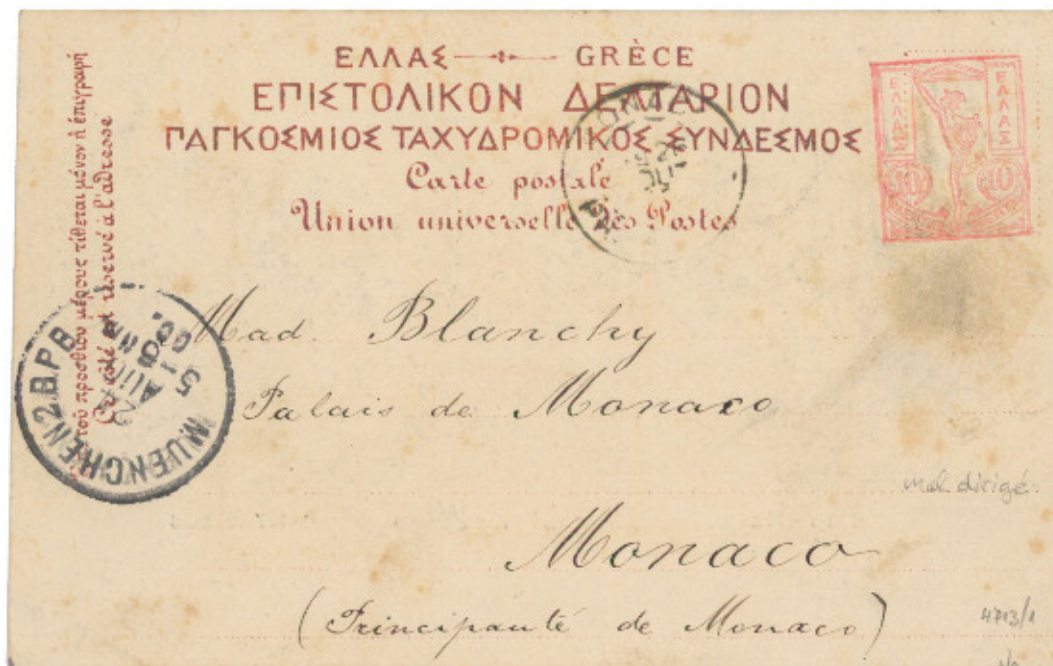 ΕΛΛΑΣ GRÈCE
ΕΠΙΣΤΟΛΙΚΟΝ ΔΕΛΤΑΡΙΟΝ
ΠΑΓΚΟΣΜΙΟΣ ΤΑΧΥΔΡΟΜΙΚΟΣ ΣΥΝΔΕΣΜΟΣ
Carte postale
Union universelle des Postes
ΕΛΛΑΣ ΕΛΛΑΣ
10 10
τοῦ προσθίου μέρους τίθεται μόνον ἡ ἐπιγραφή
réservé à l'adresse
MUENCHEN 2.B.P.B.
24
5-6
Mad. Blanchy
Palais de Monaco
mal dirigé
Monaco
(Principauté de Monaco)
4713/1